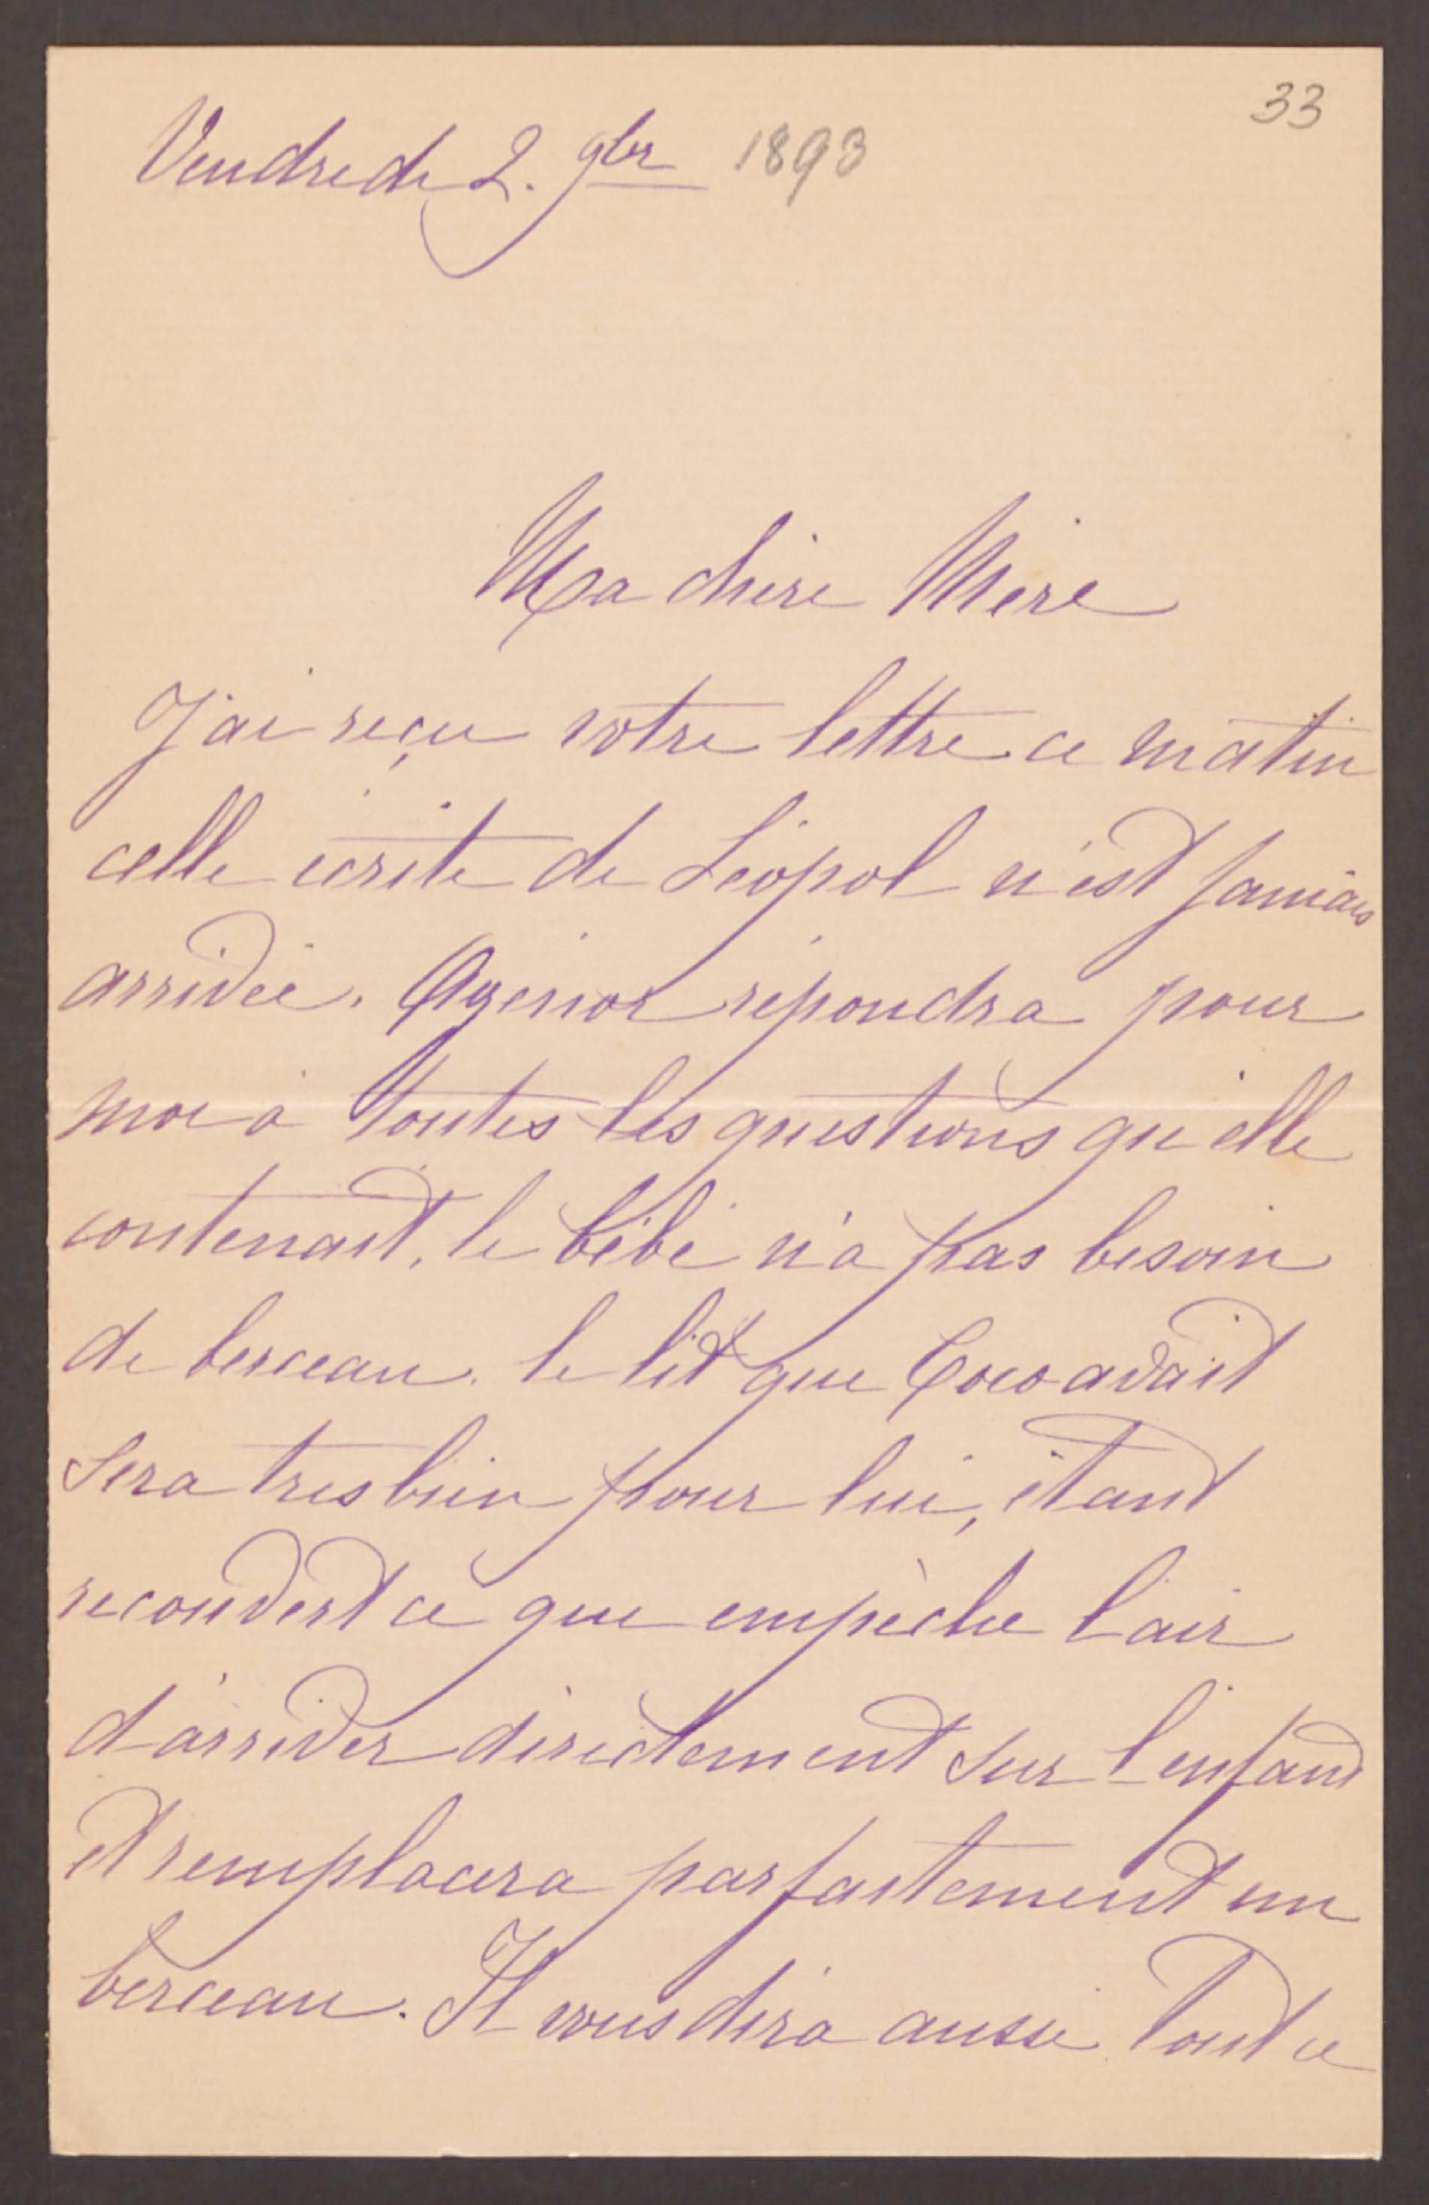 33
Vendredi 2. 9br 1893
Ma chère Mère
J'ai reçu votre lettre ce matin
celle écrite de Léopol n'est jamais
arrivée. Agénor répondra pour
moi à toutes les questions qu'elle
contenait, le bébé n'a pas besoin
de berceau. le lit que Coco avait
sera tres bien pour lui, étant
recouvert ce que empèche l'air
d'arriver directement sur l'enfant
et remplacera parfaitement un
berceau. Il vous dira aussi tout ce